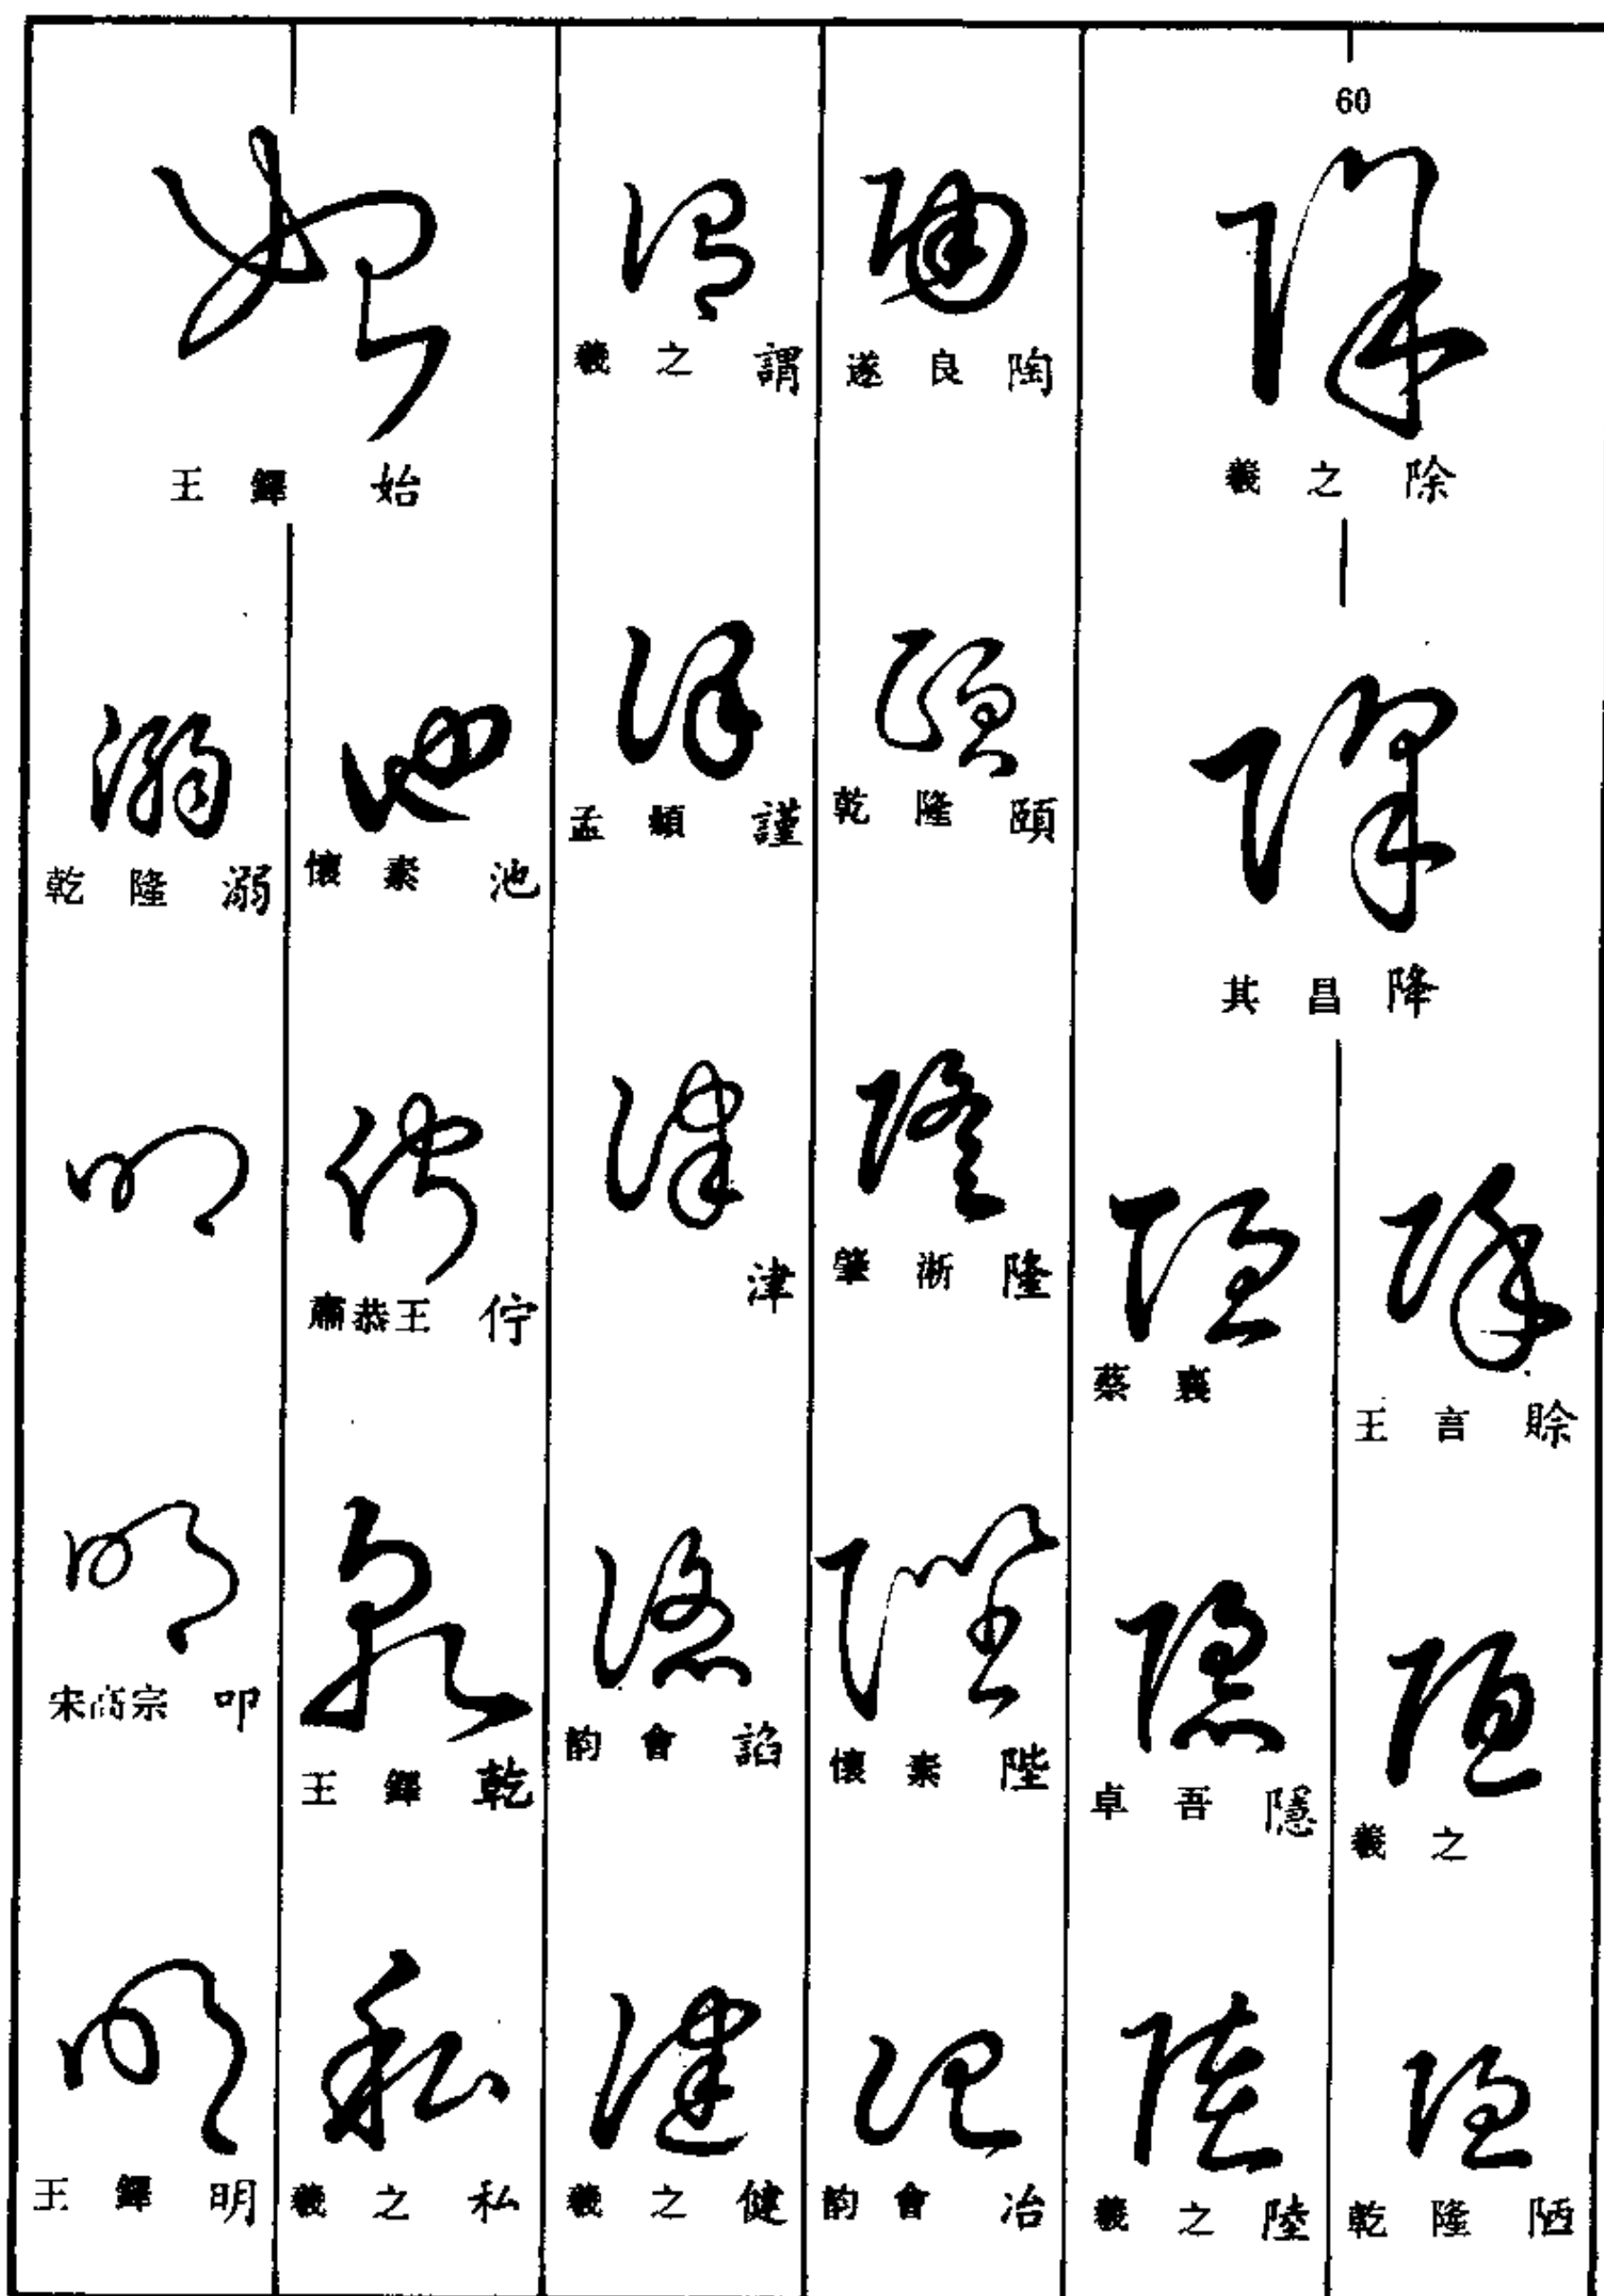 60
羲之 除
其昌 降
王言 賒
羲之
乾隆 陋
蔡襄
卓吾 隱
羲之 陸
遂良 陶
乾隆 頤
肇淛 隆
懷素 陛
韵會 冶
羲之 謂
孟頫 謹
津
韵會 諂
羲之 健
王鐸 始
懷素 池
肅恭王 佇
王鐸 乾
羲之 私
乾隆 溺
宋高宗 叩
王鐸 明